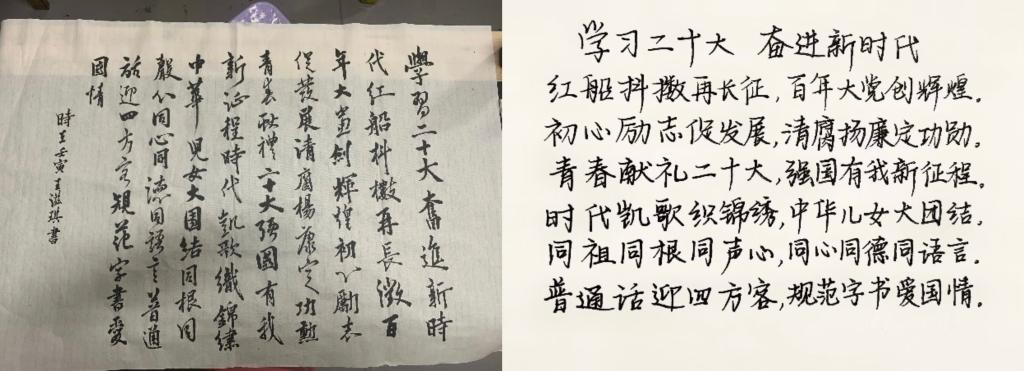 學習二十大奮進新時
代紅船抖擻再長徵百
年大黨創輝煌初心勵志
促發展清腐楊廉定功勳
青春獻禮二十大强國有我
新征程時代凱歌織錦繡
中華兒女大團結同根同
聲心同心同德同語言普通
話迎四方客規范字書愛
國情
時在壬寅王滋琪書
学习二十大 奋进新时代
红船抖擞再长征,百年大党创辉煌.
初心励志促发展,清腐扬廉定功勋.
青春献礼二十大,强国有我新征程.
时代凯歌织锦绣,中华儿女大团结.
同祖同根同声心,同心同德同语言.
普通话迎四方客,规范字书爱国情.